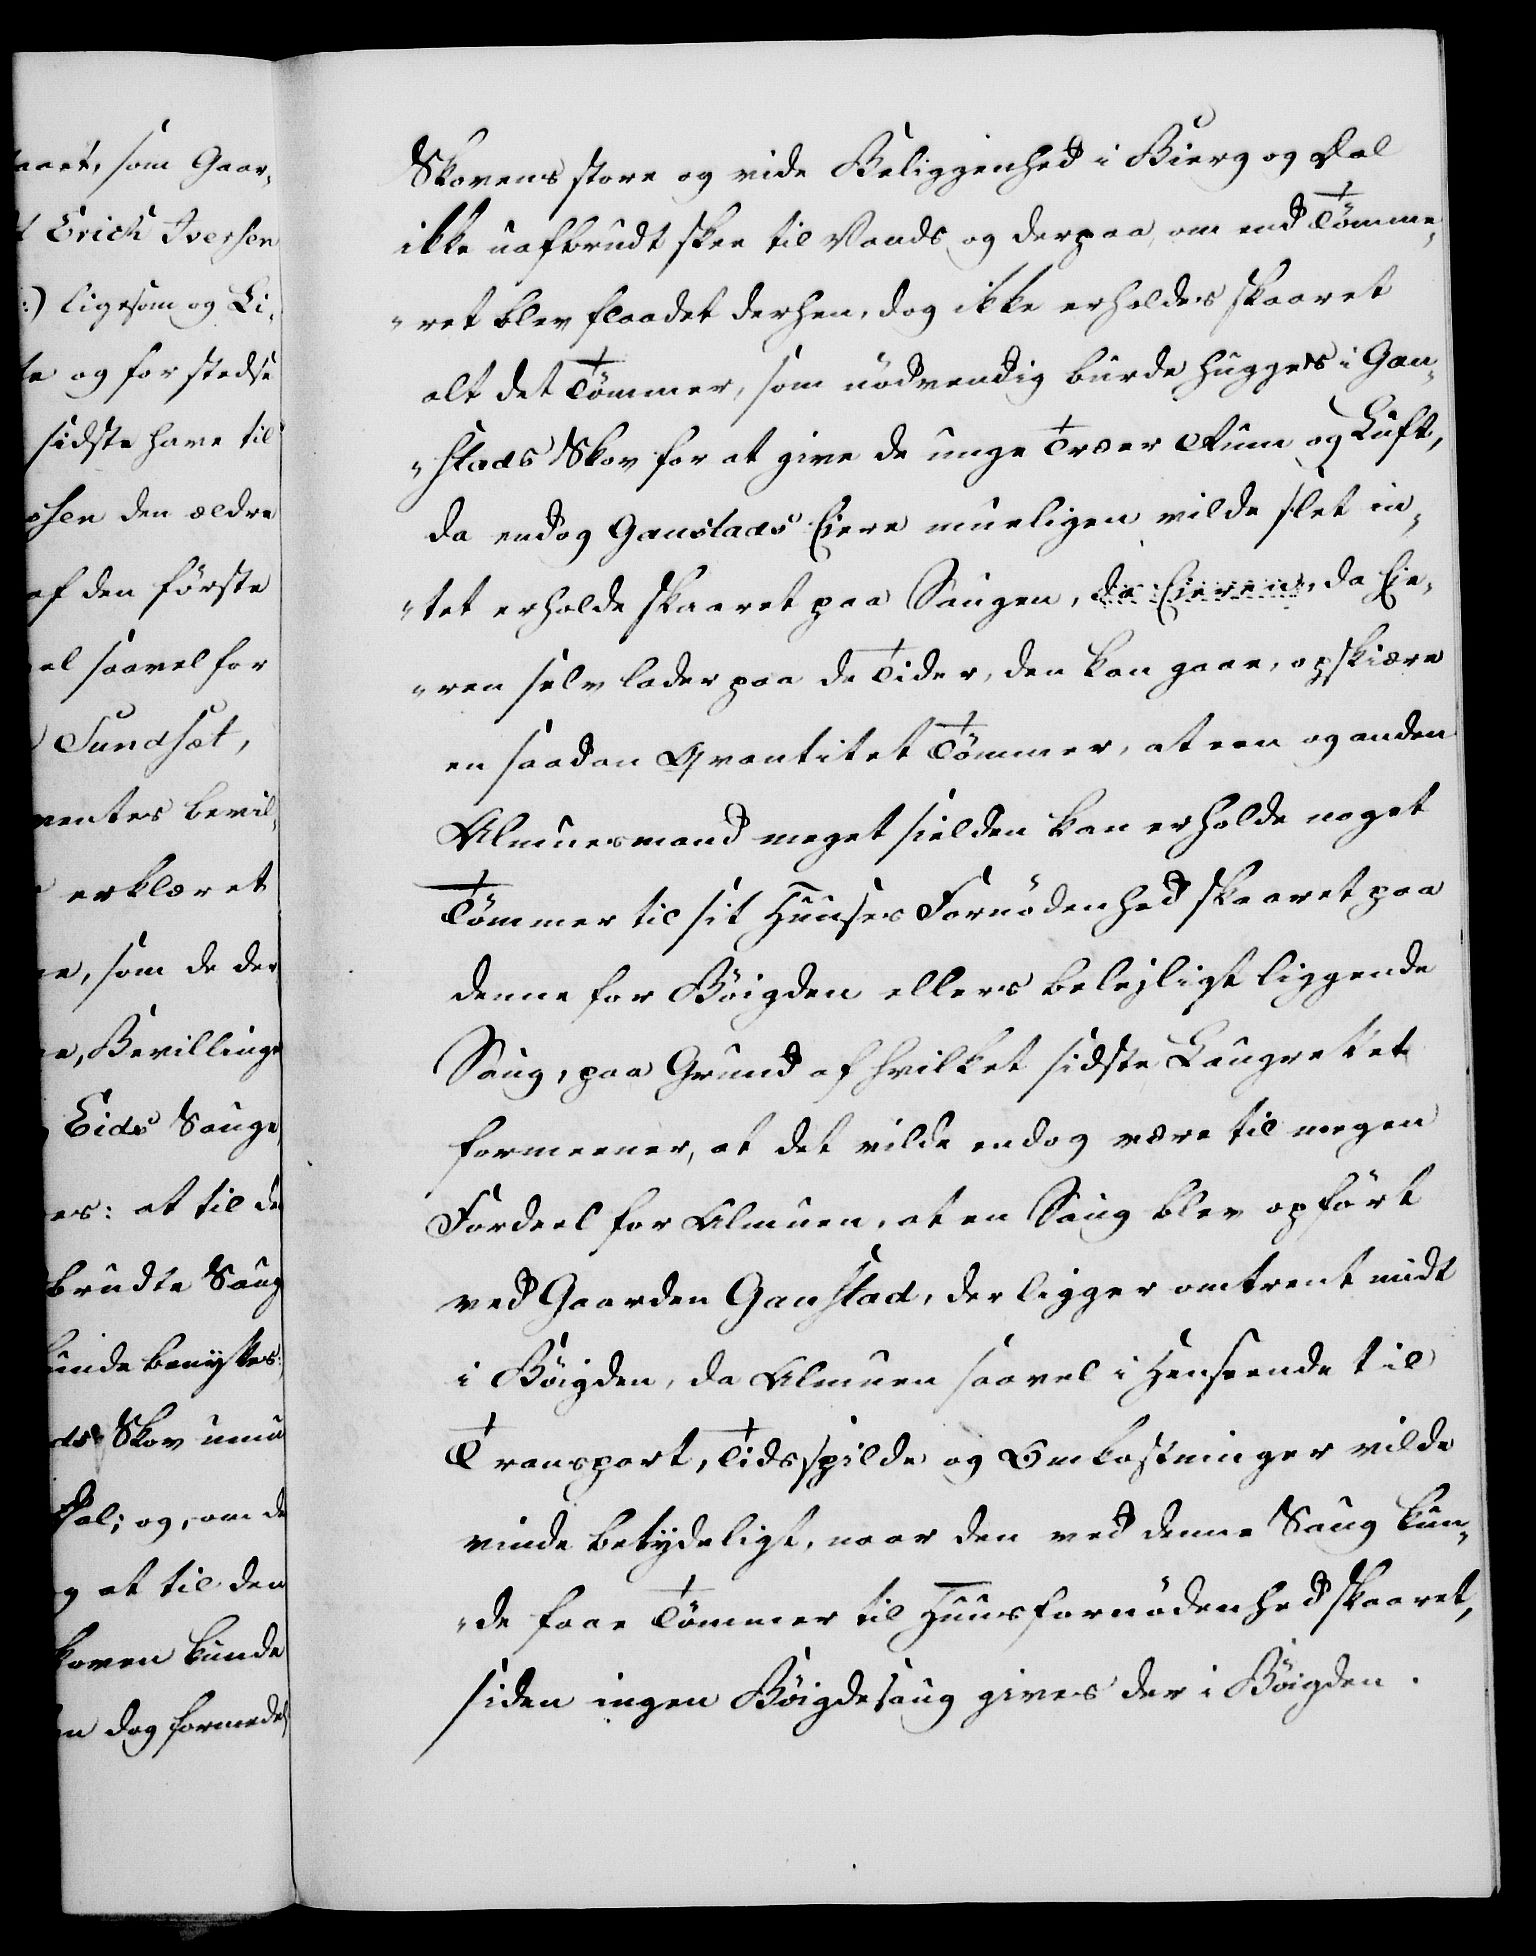 aaret, som Gaar,
Erick Iversen
:) ligesom og Li,
te og for stedse
sidste have til
sen den ældre
af den förste
el saavel for
Sundsæt,
ventes bevil,
erklæret
e, som de der
e, Bevillings
Eids Sauge
es: at til de
brudte Saug
kunde benyttes:
ds Skov umu
Dal; og, om de
g at til den
koven kunde
n dog formedel
Skovens store og vide Beliggenhed i Bierg og Dal
ikke uafbrudt skee til Vands, og derpaa, om end Tömme,
"ret blev flaadet derhen, dog ikke erholdes skaaret
alt det Tömmer, som nödvendig burde hugges i Gau,
"stads Skov for at give de unge Træer Rum og Luft,
da endog Gaustads Eiere mueligen vilde slet in,
"tet erholde skaaret paa Saugen, da Eieren, da Eie,
"ren selv lader paa de Tider, den kan gaae, opskiære
en saadan Qvantitet Tömmer, at een og anden
Almuesmand meget sielden kan erholde noget
Tömmer til sit Huuses Fornödenhed skaaret paa
denne for Böigden ellers belejligt liggende
Saug, paa Grund af hvilket sidste Laugrettet
formeener, at det vilde endog være til megen
Fordeel for Almuen, at en Saug blev opfört
ved Gaarden Gaustad, der ligger omtrent midt
i Böigden, da Almuen saavel i Henseende til
Transport, Tidsspilde og Omkostninger vilde
vinde betydeligt, naar den ved denne Saug kun,
"de faae Tömmer til Huusfornödenhed skaaret,
siden ingen Böigdesaug gives der i Böigden.